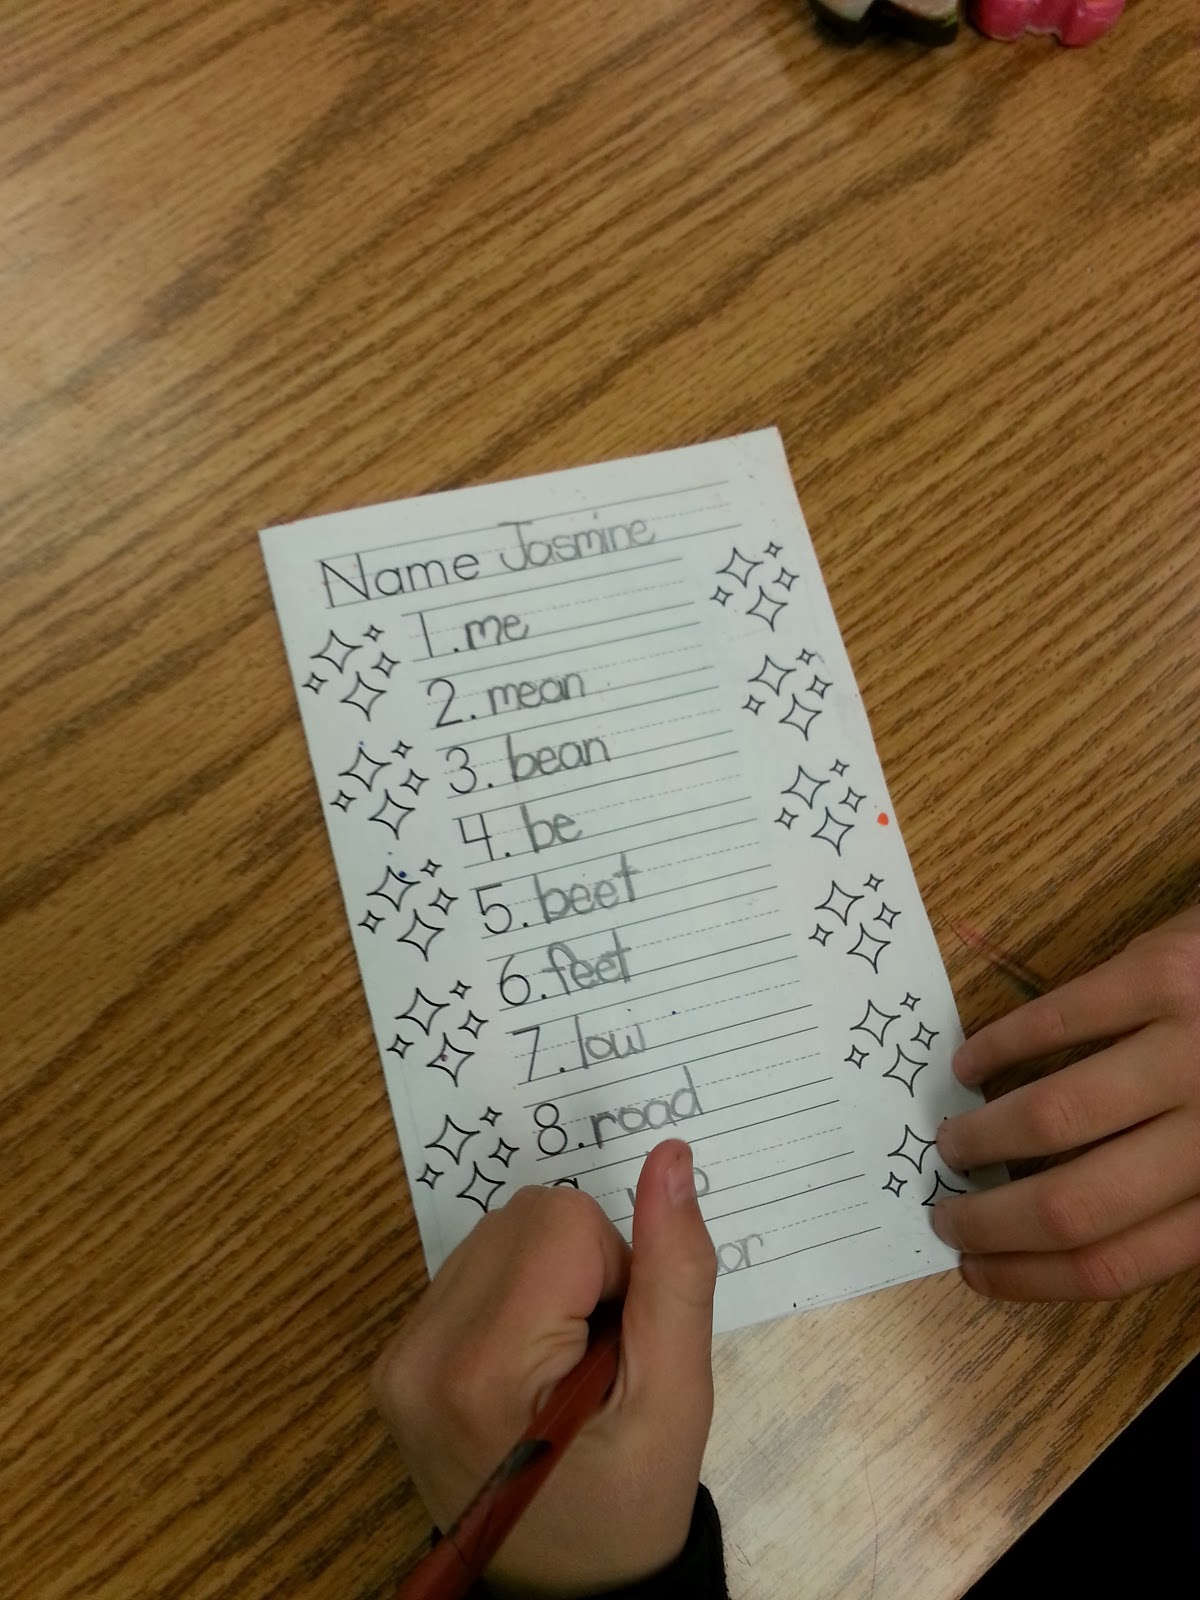 Name Jasmine
1. me
2. mean
3. bean
4. be
5. beet
6. feet
7. low
8. road